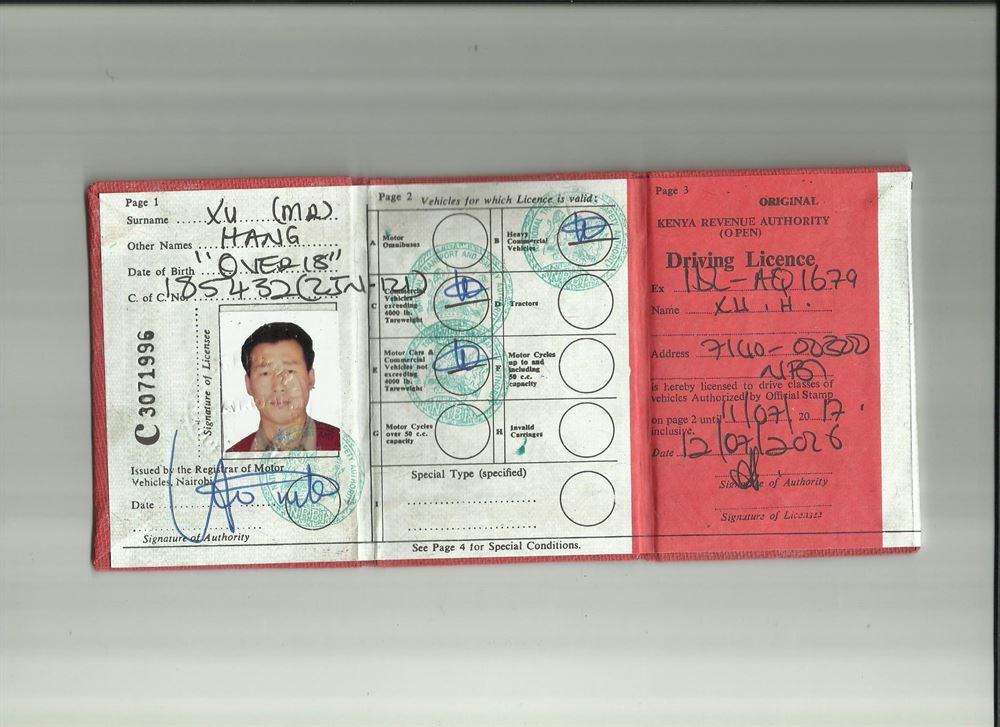 Page 1
Surname XU (MR)
Other Names HANG
Date of Birth "OVER 18"
C. of C. No. 185432 (ZJN-121)
C 3071996
Signature of Licensee
Issued by the Registrar of Motor
Vehicles, Nairobi
Date
Signature of Authority
Page 2 Vehicles for which Licence is valid:
A Motor Omnibuses
B Heavy Commercial Vehicles
C Commercial Vehicles exceeding 4000 lb. Tareweight
D Tractors
E Motor Cars & Commercial Vehicles not exceeding 4000 lb. Tareweight
F Motor Cycles up to and including 50 c.c. capacity
G Motor Cycles over 50 c.c. capacity
H Invalid Carriages
Special Type (specified)
I
See Page 4 for Special Conditions.
Page 3
ORIGINAL
KENYA REVENUE AUTHORITY
(OPEN)
Driving Licence
Ex IDL-AEQ1679
Name XU . H .
Address 7140-00300
NBI
is hereby licensed to drive classes of
vehicles Authorized by Official Stamp
on page 2 until 11/07/ 20 17 .
inclusive.
Date 12/07/2016
Signature of Authority
Signature of Licensee